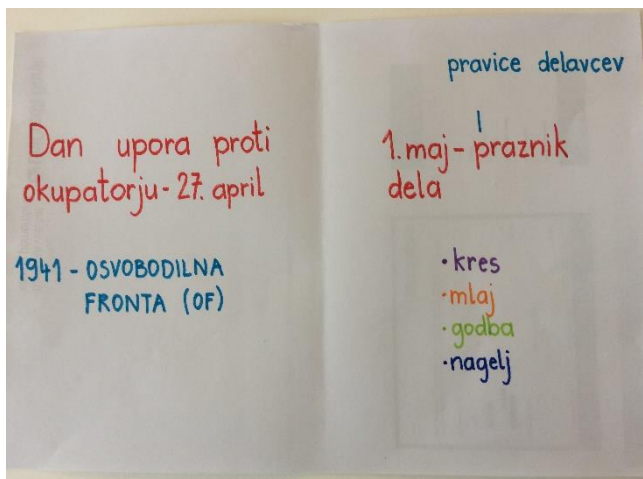 Dan upora proti
okupatorju - 27. april
1941 - OSVOBODILNA
FRONTA (OF)
pravice delavcev
1. maj - praznik
dela
· kres
· mlaj
· godba
· nagelj